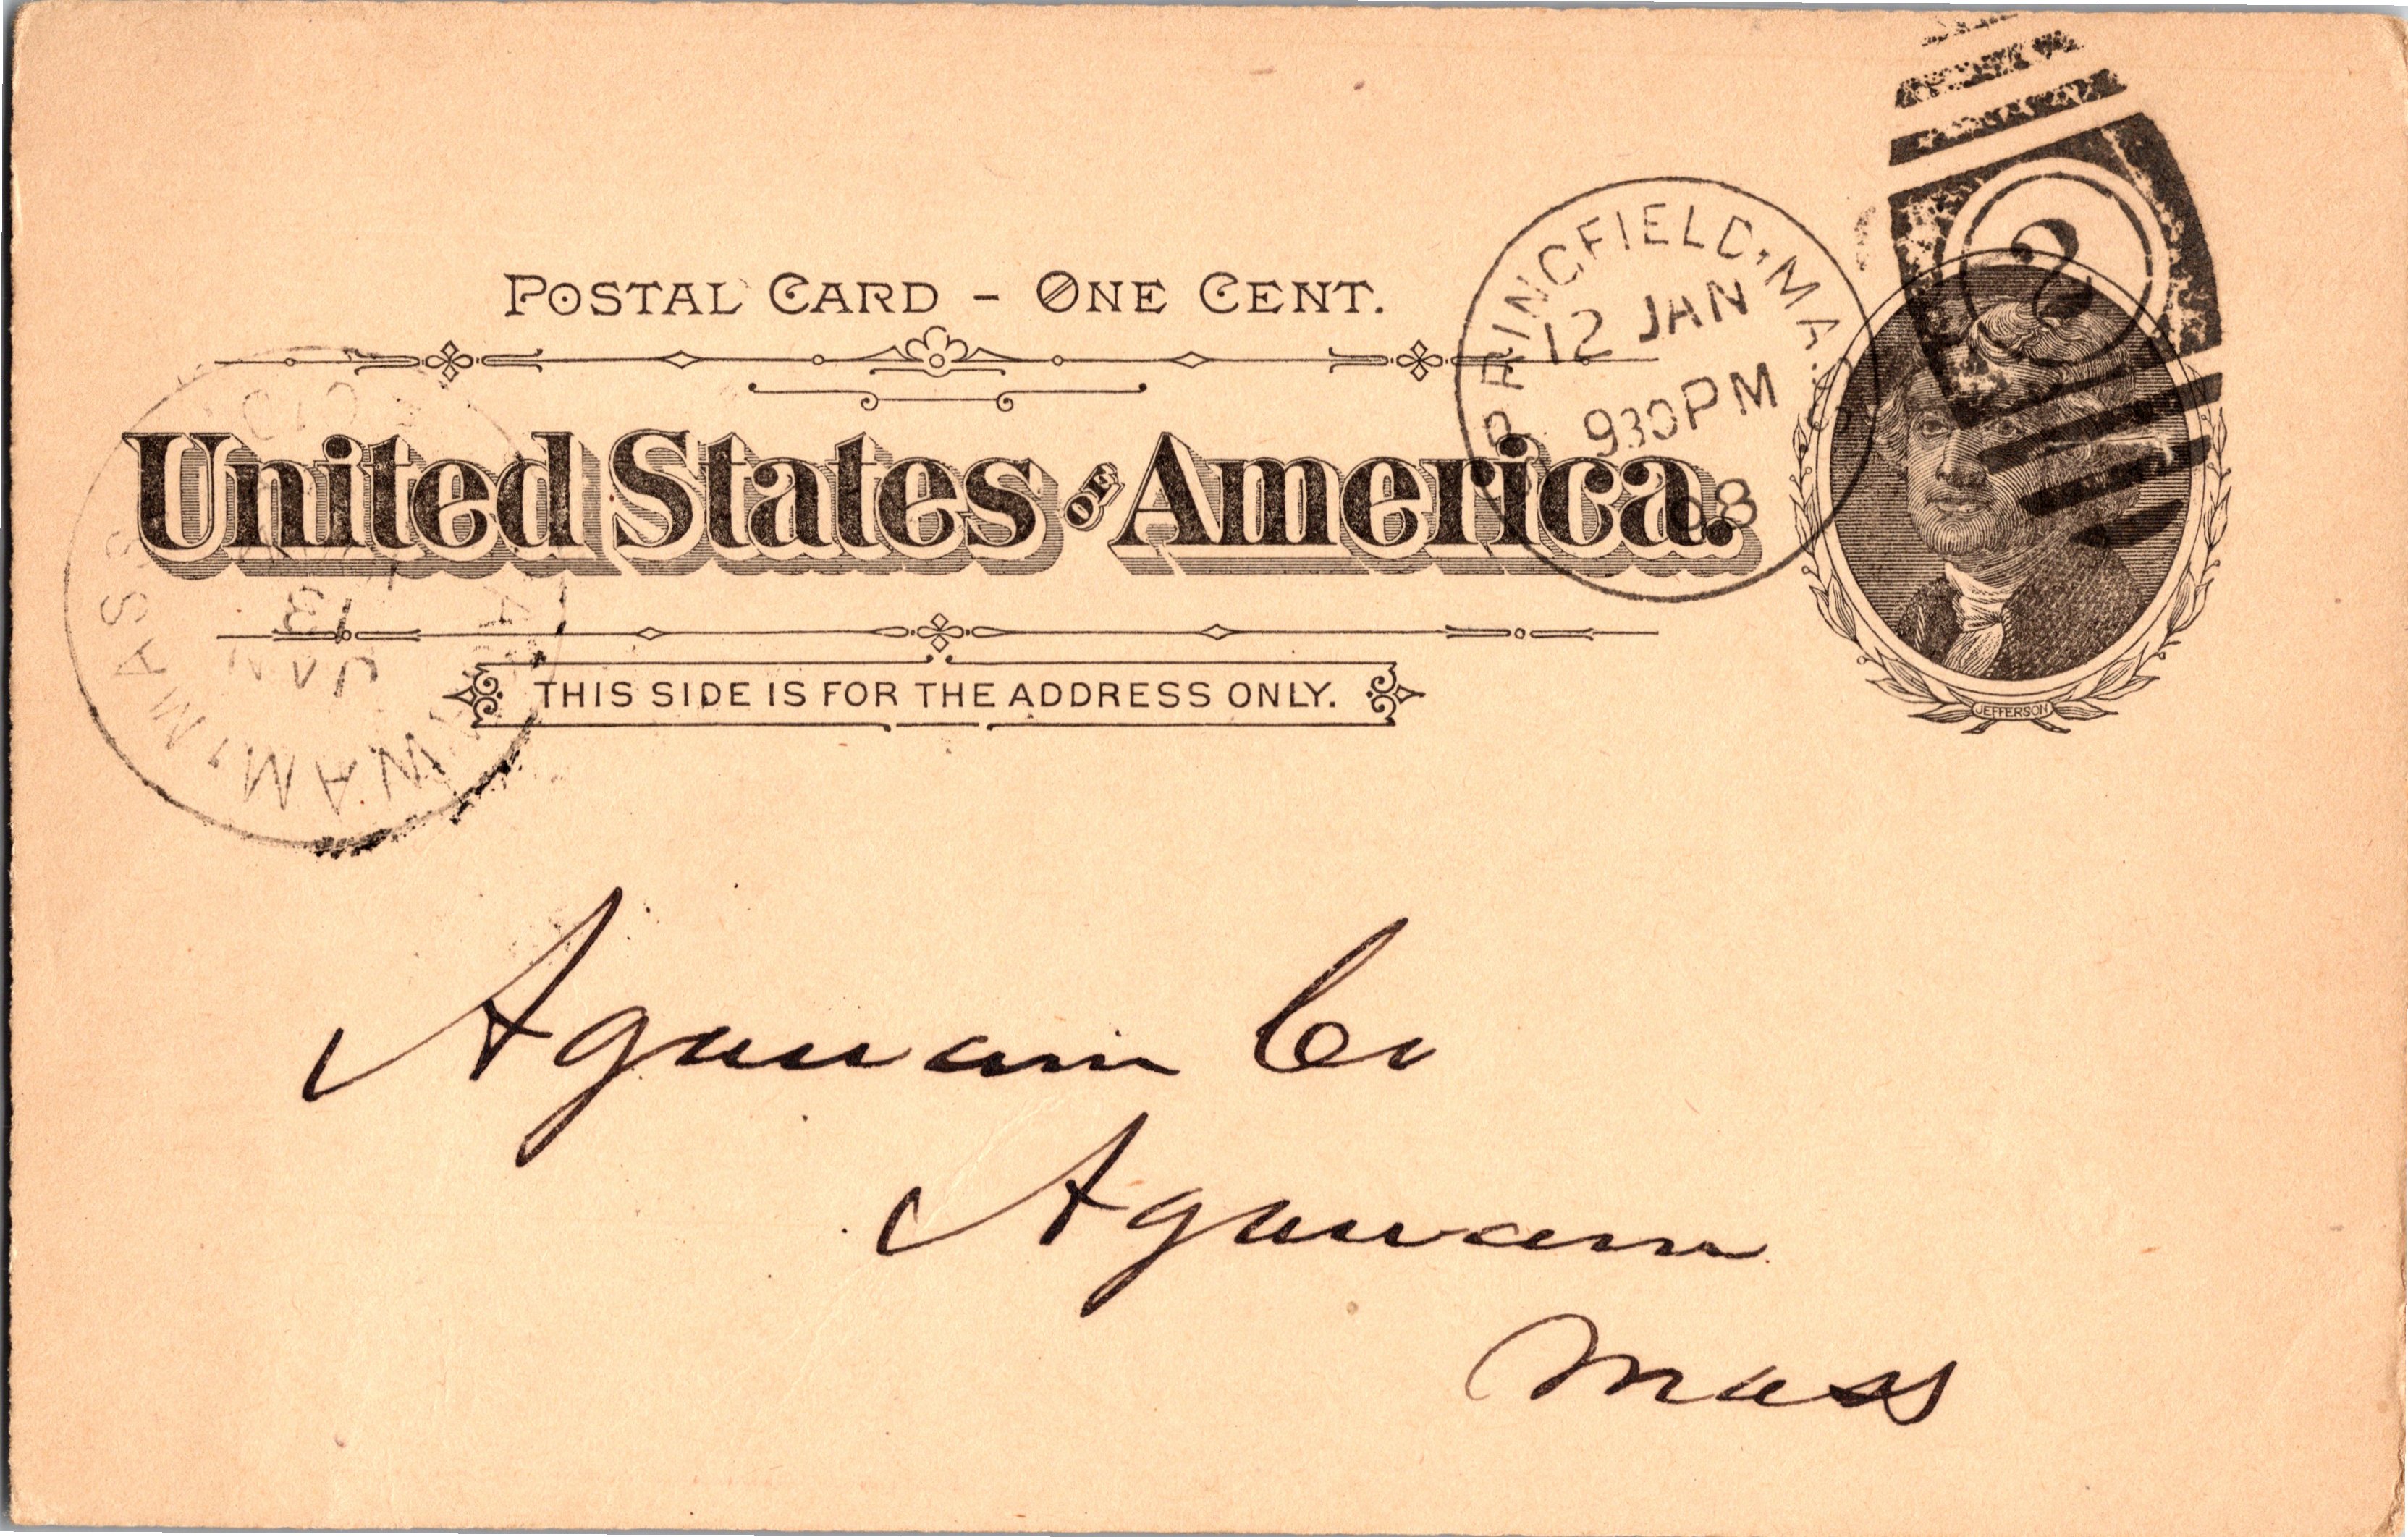 POSTAL CARD - ONE CENT.
United States OF America.
THIS SIDE IS FOR THE ADDRESS ONLY.
SPRINGFIELD, MASS
12 JAN
930PM
98
2
JEFFERSON
MASS
JAN
13
Agawam Co
Agawam
Mass